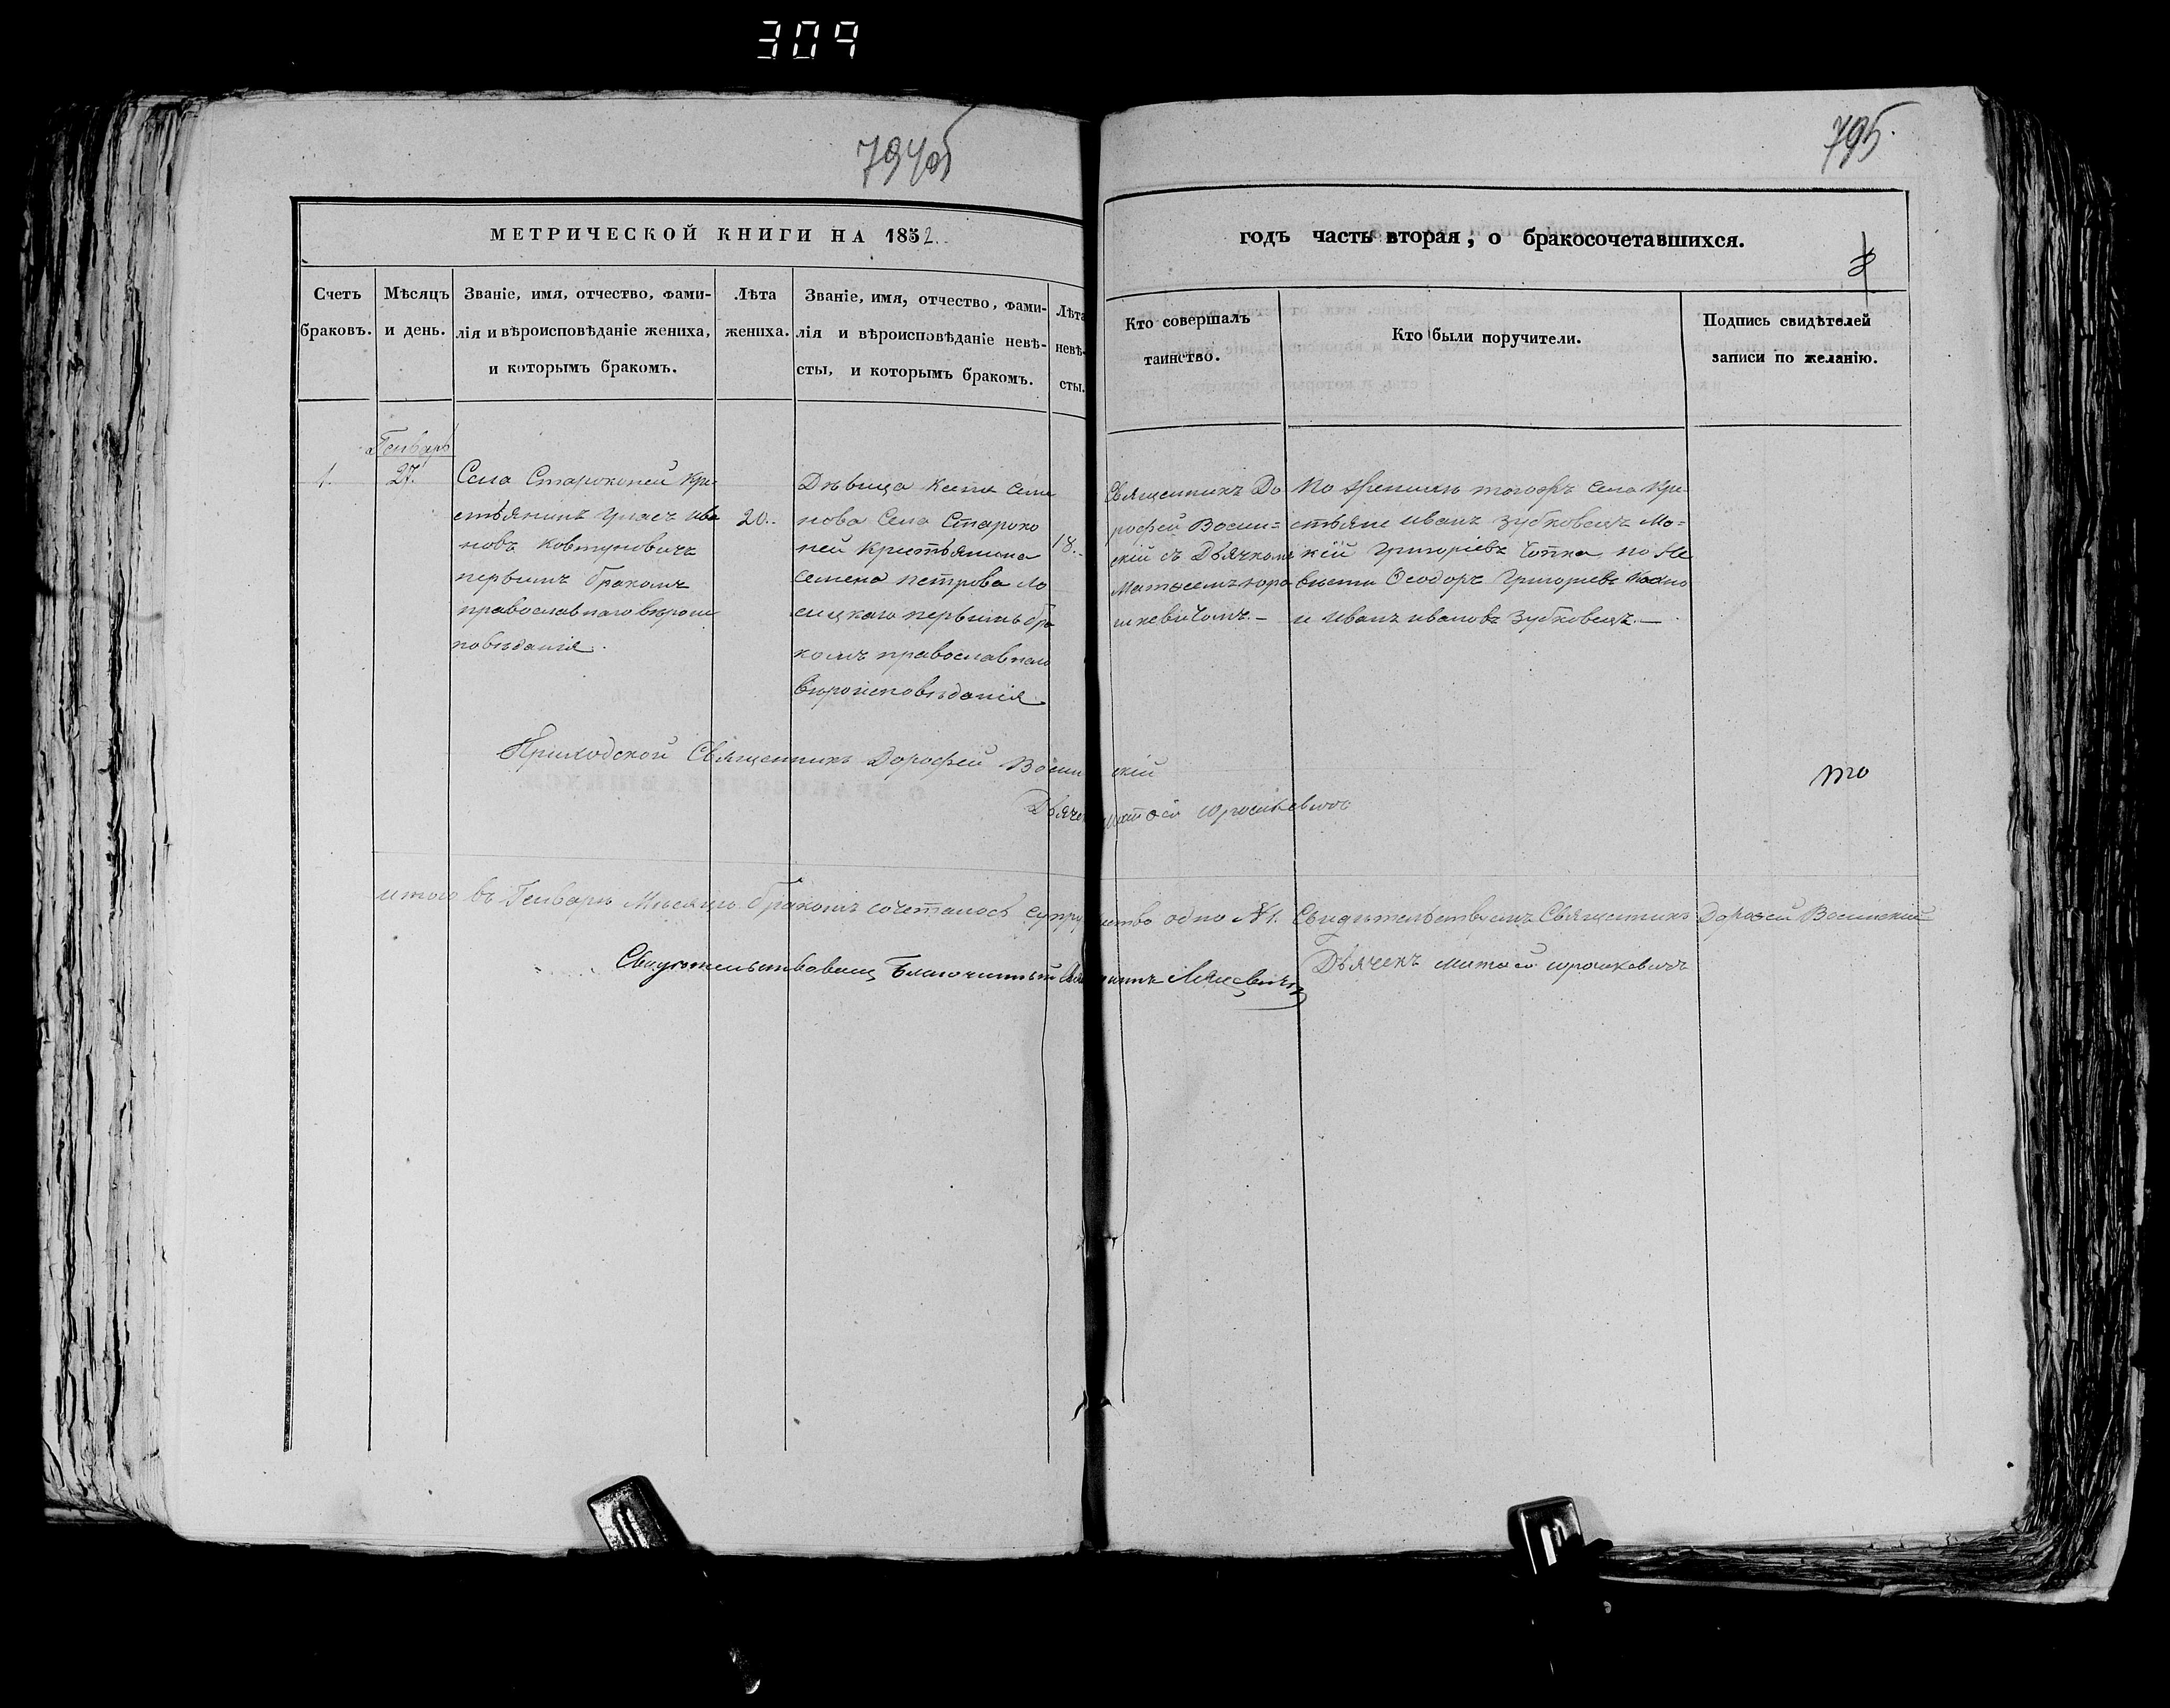 309
794об
795.
МЕТРИЧЕСКОЙ КНИГИ НА 1852.
годъ часть вторая, о бракосочетавшихся.
Счетъ
браковъ.
Мѣсяцъ
и день.
Званіе, имя, отчество, фами-
лія и вѣроисповѣданіе жениха,
и которымъ бракомъ.
Лѣта
жениха.
Званіе, имя, отчество, фами-
лія и вѣроисповѣданіе невѣ-
сты, и которымъ бракомъ.
Лѣта
невѣ-
сты.
Кто совершалъ
таинство.
Кто были поручители.
Подпись свидѣтелей
записи по желанію.
Генварь
1.
27.
Села Староконей Кри-
стьянинъ Игнасъ Ива
новъ Ковтуновичъ
первымъ бракомъ
православнаго вѣроис
повѣданія.
20.
Дѣвица Ксеня Семе
нова Села Староко
ней Кристьянина
Семена Петрова Ло
сицкаго первымъ бра
комъ православнаго
вѣроисповѣданія
18.
Священникъ До
рофей Восин=
скій съ Дьячкомъ
Матѳеемъ Юро
шкевичомъ.—
По женихѣ тогожъ Села Кри-
стьяне Иванъ Зубковецъ Мо=
кій Григоріевъ Чопка по Не
вѣсти Ѳеодоръ Григоріевъ
и Иванъ Ивановъ Зубковецъ.—
Приходской Священникъ Дорофей Восинскій
Дьячекъ Матѳей Юрошкевичъ
итого въ Генварѣ Мѣсяцѣ бракомъ сочеталось супружество одно №1. Свидѣтельствуемъ Священникъ Дорофей Восинскій
Дьячекъ Матѳей Юрошкевичъ
Свидѣтельствовалъ Благочинный